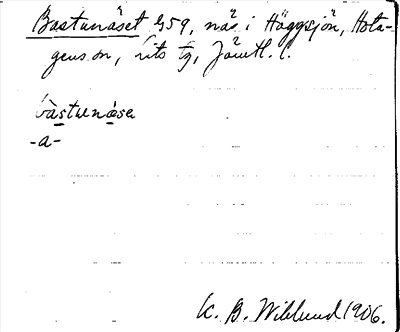 Bastunäset G59, nä̀s i Häggsjön, Hota-
gens sn, Lits tg, Jämtl. l.
bàstunǻsa
-a-
K. B. Wiklund 1906.